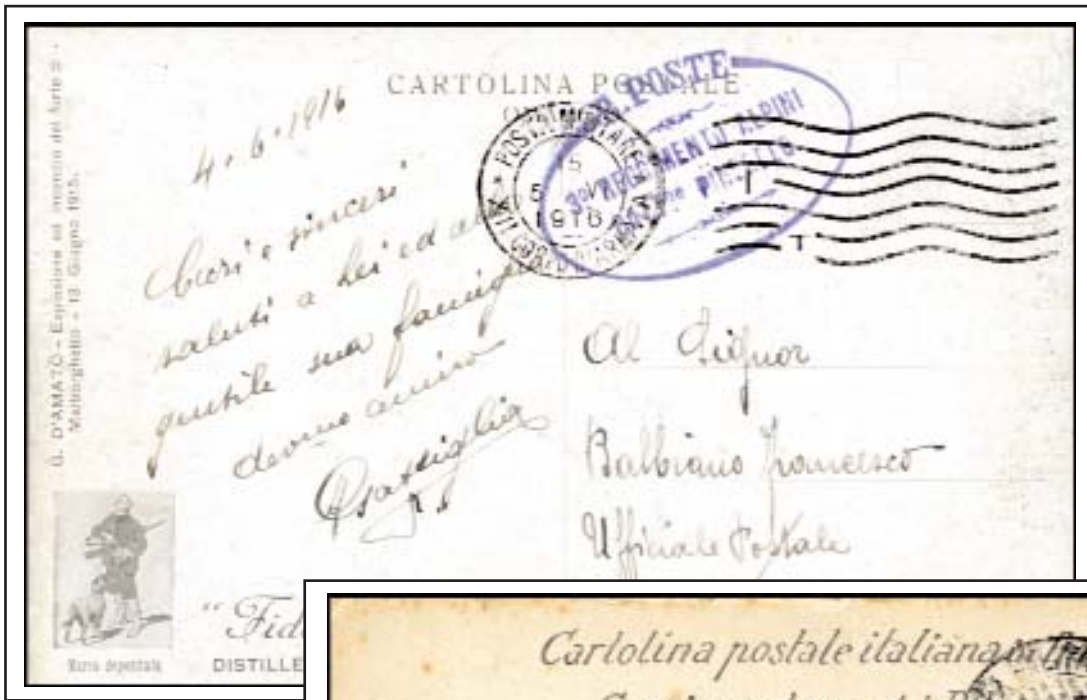 G. D'AMATO - Esposizione ed
Malborghetto - 13 Giugno 1915.
CARTOLINA POSTALE
R. POSTE
3º REGGIMENTO ALPINI
POSTA MILITARE
5
1916
4.6.1916
Cari e sinceri
saluti a Lei ed alla
gentile sua famiglia
devmo amico
Al Signor
Balbiano Francesco
Ufficiale Postale
Marca depositata
"Fid
DISTILLE
Cartolina postale italiana